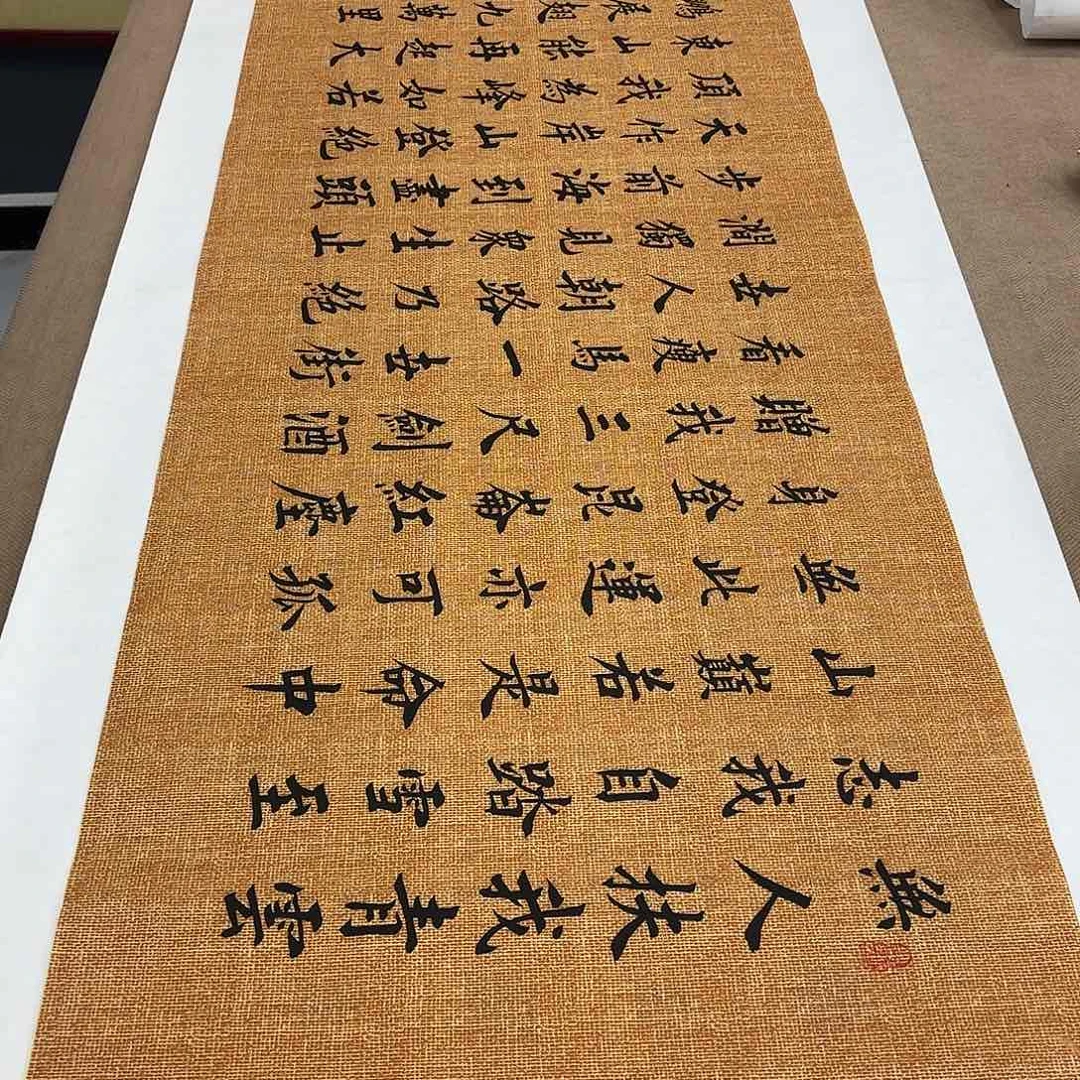 無人扶我青雲
志我自踏雪至
山巔若是命中
無此運亦可孤
身登昆崙紅塵
贈我三尺劍酒
肴瘦馬一世街
世人朝路乃絕
澗獨見眾生止
步前海到盡頭
天作岸山登絕
頂我為峰如若
東山能再起大
鵬展翅九萬里